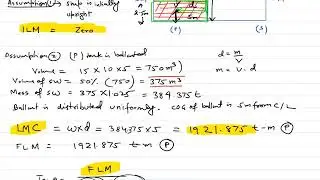 Assumption 1 ship is initially
upright
d
2.5m
(P) (S)
ILM = Zero
Assumption (2) (P) tank is ballasted
d = m/v
m = v.d
Volume = 15 × 10 × 5 = 750 m³
Volume of SW = 50% (750) = 375 m³
Mass of SW = 375 × 1.025 = 384.375 t
Ballast is distributed uniformly. COG of ballast is 5m from C/L
LMC = w × d = 384.375 × 5 = 1921.875 t-m (P)
FLM = 1921.875 t-m (P)
FLM